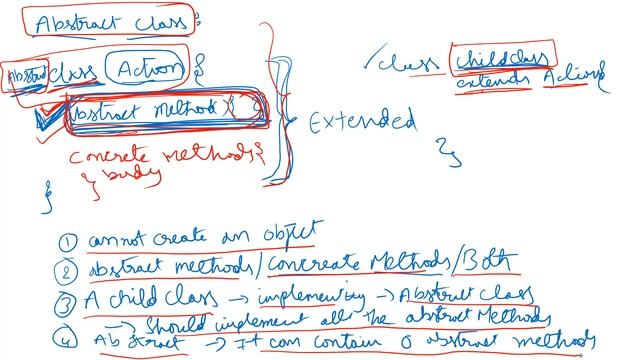 Abstract class:
Abstract class Action {
abstract method() { }
concrete methods {
} body
}
Extended
class childclass
extends Action {
}
① cannot create an object
② abstract methods/concreate Methods/Both
③ A child class → implementing → Abstract class
→ Should implement all the abstract Methods
④ Abstract → It can contain 0 abstract methods